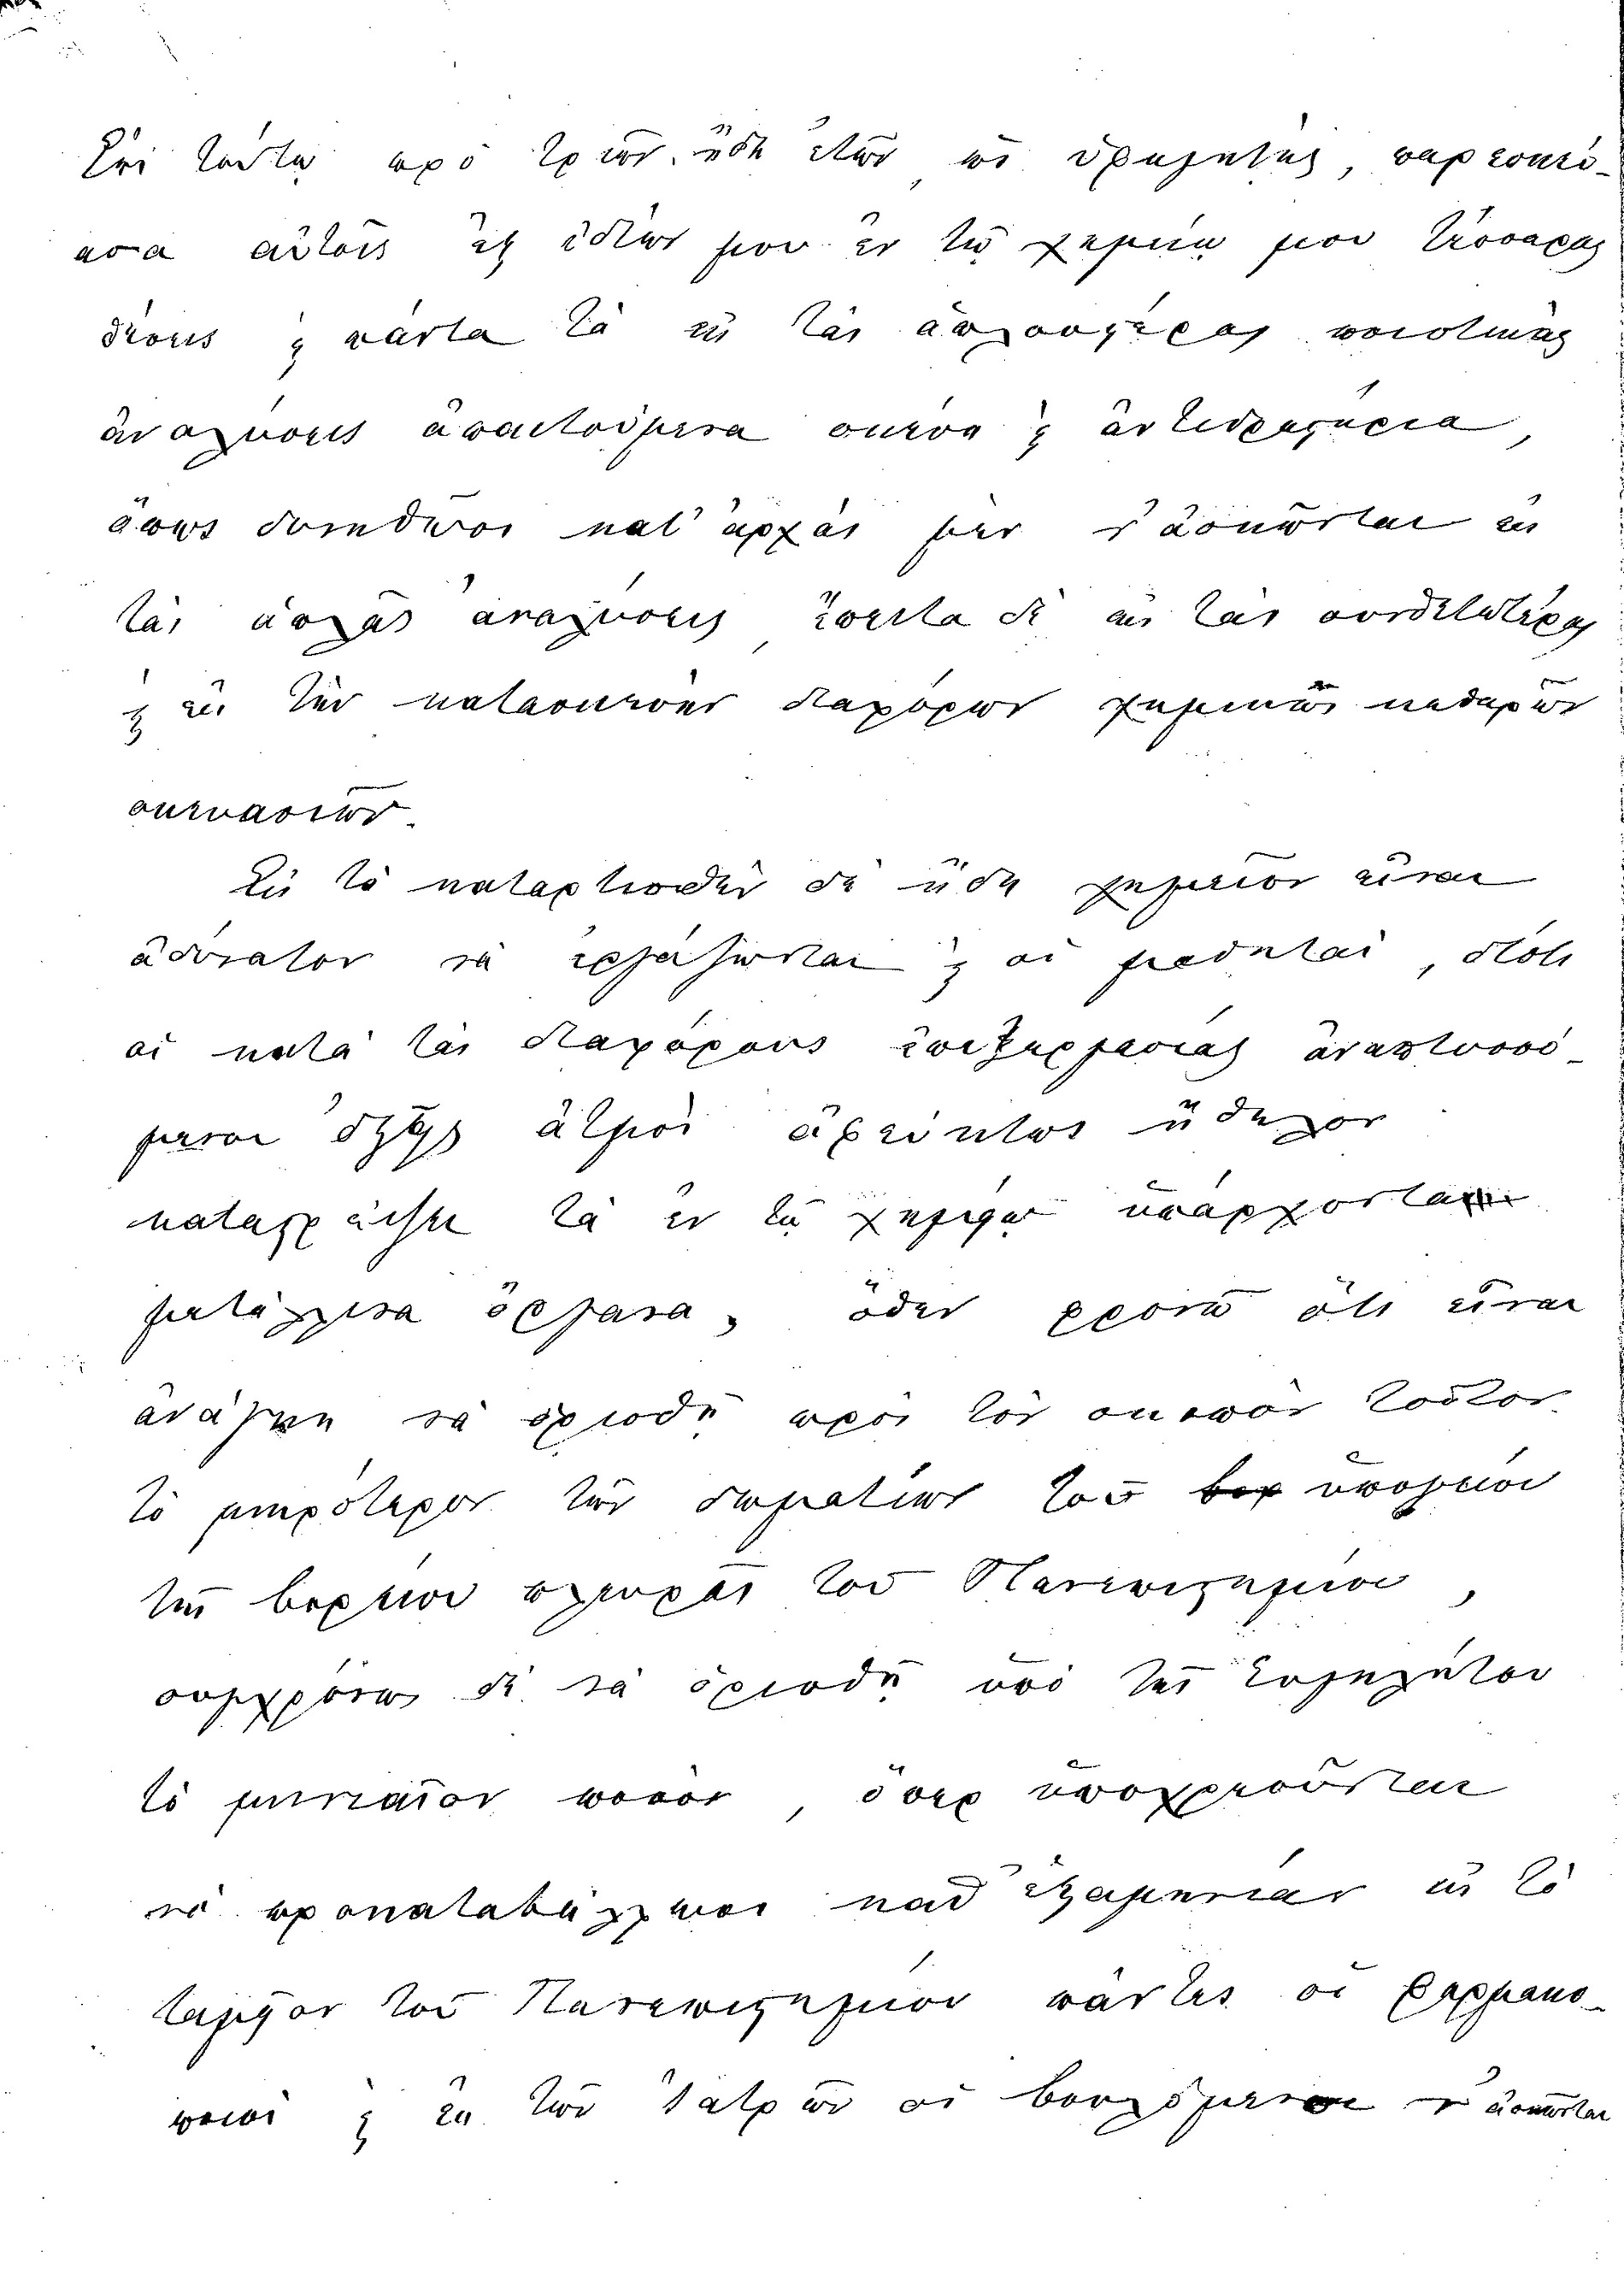 Ἐπὶ τούτῳ πρὸ τριῶν ἤδη ἐτῶν, ὡς ὑφηγητής, παρεσκεύ-
ασα αὐτοῖς ἐξ ἰδίων μου ἐν τῷ χημείῳ μου τέσσαρας
θέσεις ϗ πάντα τὰ εἰς τὰς ἁπλουστέρας ποιοτικὰς
ἀναλύσεις ἀπαιτούμενα σκεύη ϗ ἀντιδραστήρια,
ὅπως δυνηθῶσι κατ' ἀρχὰς μὲν ν' ἀσκῶνται εἰς
τὰς ἁπλᾶς ἀναλύσεις, ἔπειτα δὲ εἰς τὰς συνθετωτέρας
ϗ εἰς τὴν κατασκευὴν διαφόρων χημικῶν καθαρῶν
σκευασιῶν.
Εἰς τὸ καταρτισθὲν δὲ ἤδη χημεῖον εἶναι
ἀδύνατον νὰ ἐργάζωνται ϗ οἱ μαθηταί, διότι
οἱ κατὰ τὰς διαφόρους ἐπεξεργασίας ἀναπτυσσό-
μενοι ὀξεῖς ἀτμοὶ ἀφεύκτως ἤθελον
καταστρέψει τὰ ἐν τῷ χημείῳ ὑπάρχοντα
μετάλλινα ὄργανα, ὅθεν φρονῶ ὅτι εἶναι
ἀνάγκη νὰ ὁρισθῇ πρὸς τὸν σκοπὸν τοῦτον
τὸ μικρότερον τῶν δωματίων τοῦ βορ ὑπογείου
τῆς βορείου πλευρᾶς τοῦ Πανεπιστημίου,
συγχρόνως δὲ νὰ ὁρισθῇ ὑπὸ τῆς Συγκλήτου
τὸ μηνιαῖον ποσόν, ὅπερ ὑποχρεοῦνται
νὰ προκαταβάλλωσι καθ' ἑξαμηνίαν εἰς τὸ
ταμεῖον τοῦ Πανεπιστημίου πάντες οἱ φαρμακο-
ποιοὶ ϗ ἐκ τῶν ἰατρῶν οἱ βουλόμενοι ν' ἀσκῶνται